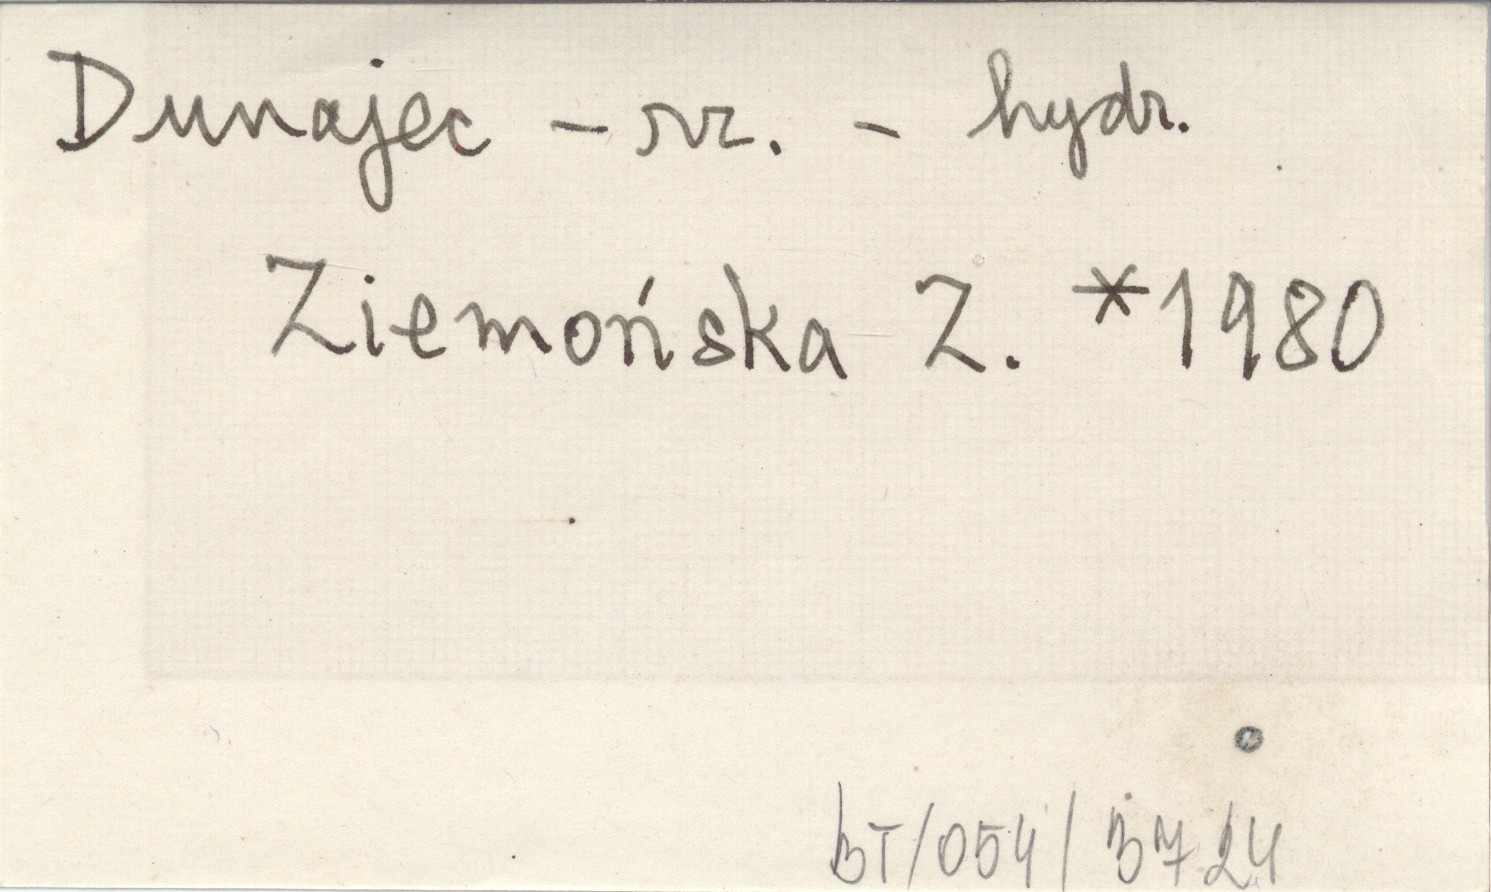 Dunajec - rz. - hydr.
Ziemońska Z. *1980
BT/054/3724